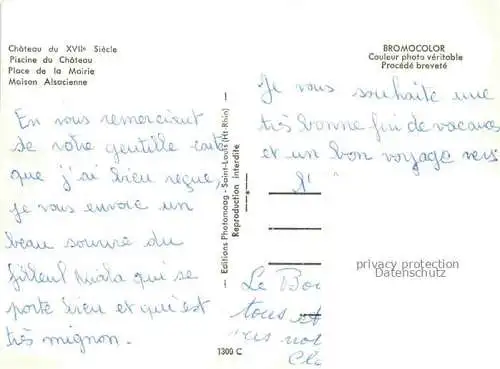 Château du XVIIe Siècle
Piscine du Château
Place de la Mairie
Maison Alsacienne
BROMOCOLOR
Couleur photo véritable
Procédé breveté
En vous remerciant
de votre gentille carte
que j'ai bien reçue,
je vous envoie un
beau sourire du
filleul qui se
porte bien et qui est
très mignon.
— Editions Photomaag - Saint-Louis (Ht-Rhin) —
Reproduction interdite
Je vous souhaite une
très bonne fin de vacances
et un bon voyage vers
l'
privacy protection
Datenschutz
Le Bon
tous et
1300 C